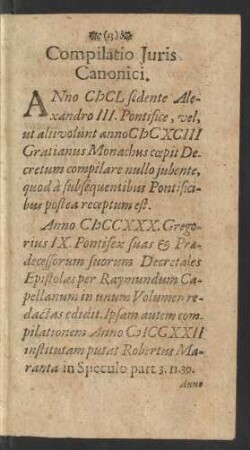 (13)
Compilatio Juris
Canonici.
ANno CIƆCL sidente Ale-
xandro III. Pontifice, vel,
ut alii volunt anno CIƆCXCIII
Gratianus Monachus cœpit De-
cretum compilare nullo jubente,
quod à subsequentibus Pontifici-
bus postea receptum est.
Anno CIƆCCXXX. Grego-
rius IX. Pontifex suas & Præ-
decessorum suorum Decretales
Epistolas per Raymundum Ca-
pellanum in unum Volumen re-
dactas edidit. Ipsam autem com-
pilationem Anno CIƆCCXXII
institutam putat Robertus Ma-
ranta in Speculo part 3. n. 30.
Anno